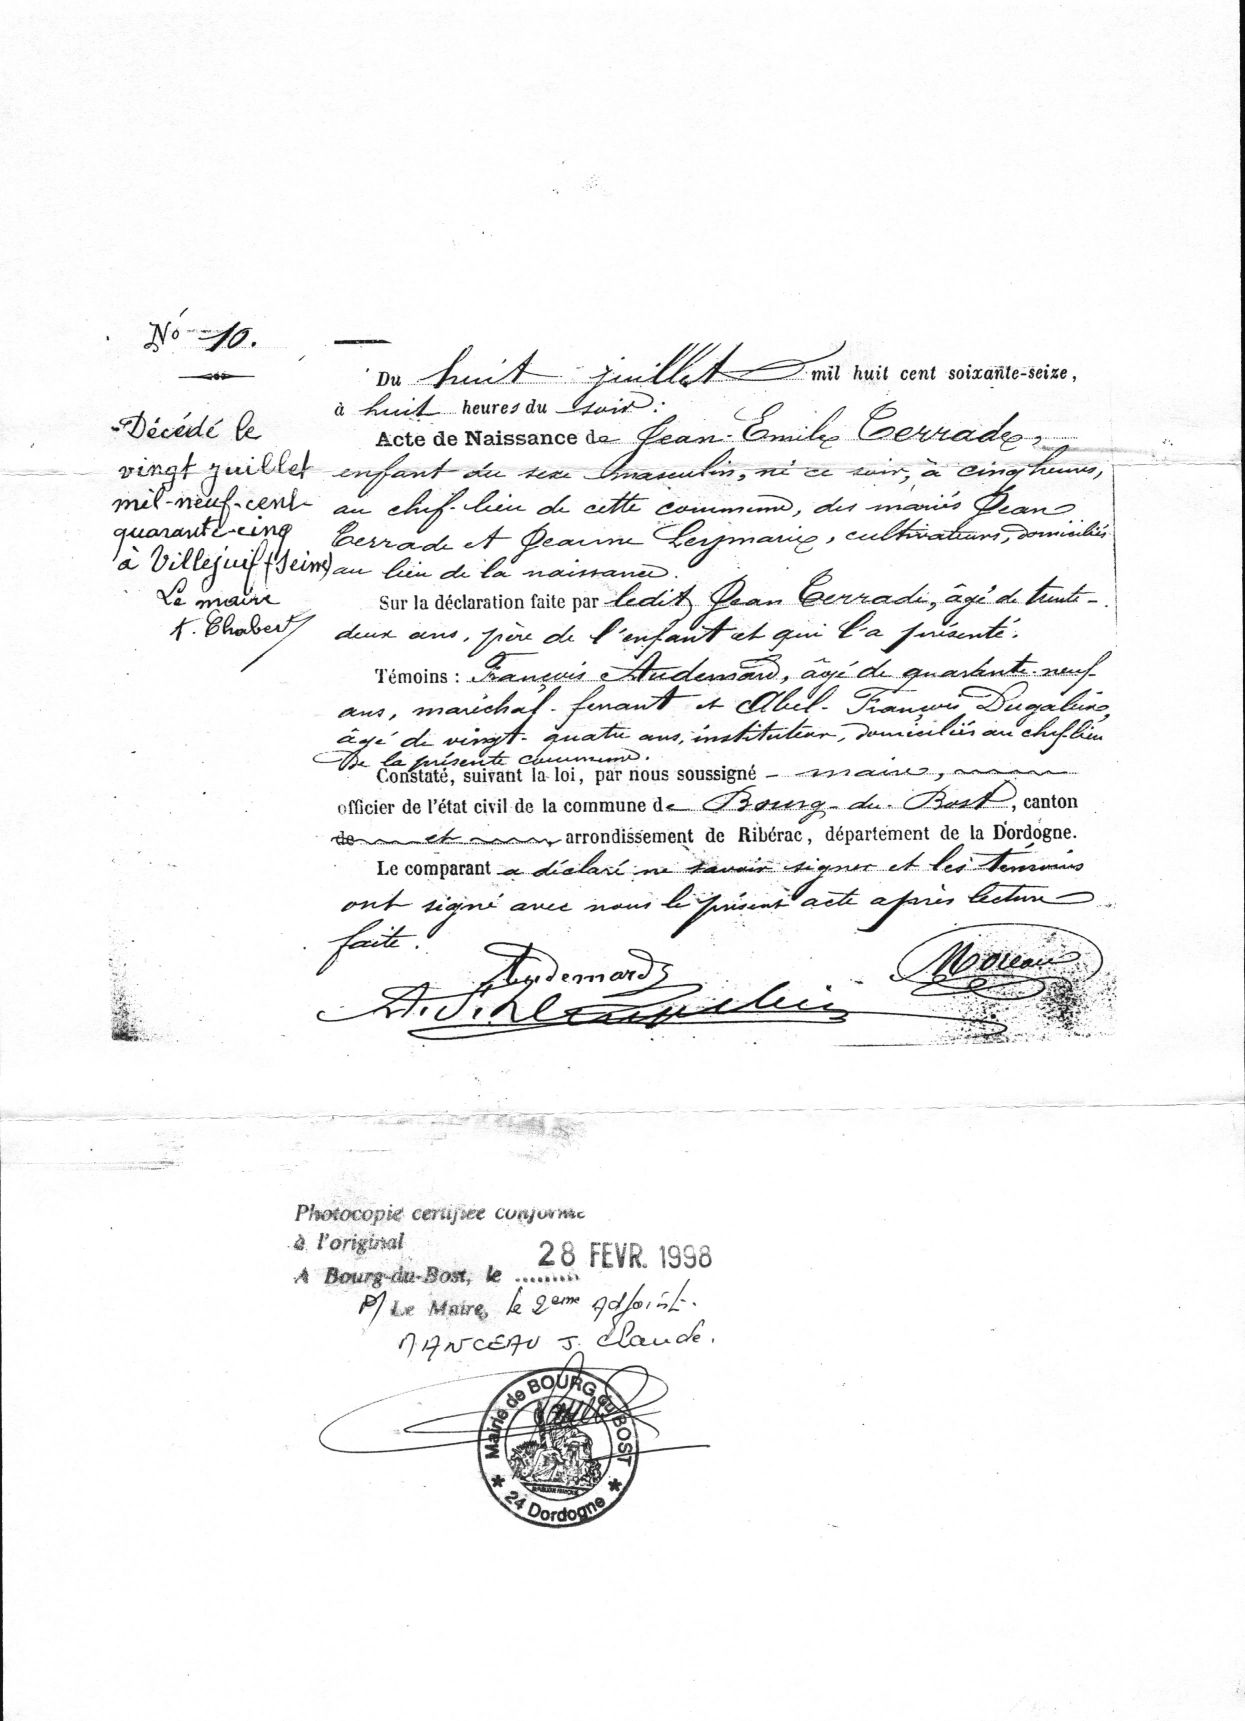 No 10.
Décédé le
vingt juillet
mil-neuf-cent-
quarante-cinq
à Villejuif (Seine)
Le maire
A. Chabert
Du huit juillet mil huit cent soixante-seize,
à huit heures du soir.
Acte de Naissance de Jean-Emile Terrade,
enfant du sexe masculin, né ce soir, à cinq heures,
au chef-lieu de cette commune, des mariés Jean
Terrade et Jeanne Leymarie, cultivateurs, domiciliés
au lieu de la naissance.
Sur la déclaration faite par ledit Jean Terrade, âgé de trente-
deux ans, père de l'enfant et qui l'a présenté.
Témoins : François Audemard, âgé de quarante-neuf
ans, maréchal-ferrant et Abel-François
âgé de vingt-quatre ans, instituteur, domiciliés au chef-lieu
de la présente commune.
Constaté, suivant la loi, par nous soussigné - maire,
officier de l'état civil de la commune de Bourg-du-Bost, canton
de et arrondissement de Ribérac, département de la Dordogne.
Le comparant a déclaré ne savoir signer et les témoins
ont signé avec nous le présent acte après lecture
faite.
Audemard
Moreau
Photocopie certifiée conforme
à l'original
A Bourg-du-Bost, le ......... 28 FEVR. 1998
P/ Le Maire, le 2ème Adjoint.
MANCEAU J. Claude.
Mairie de BOURG du BOST
* 24 Dordogne *